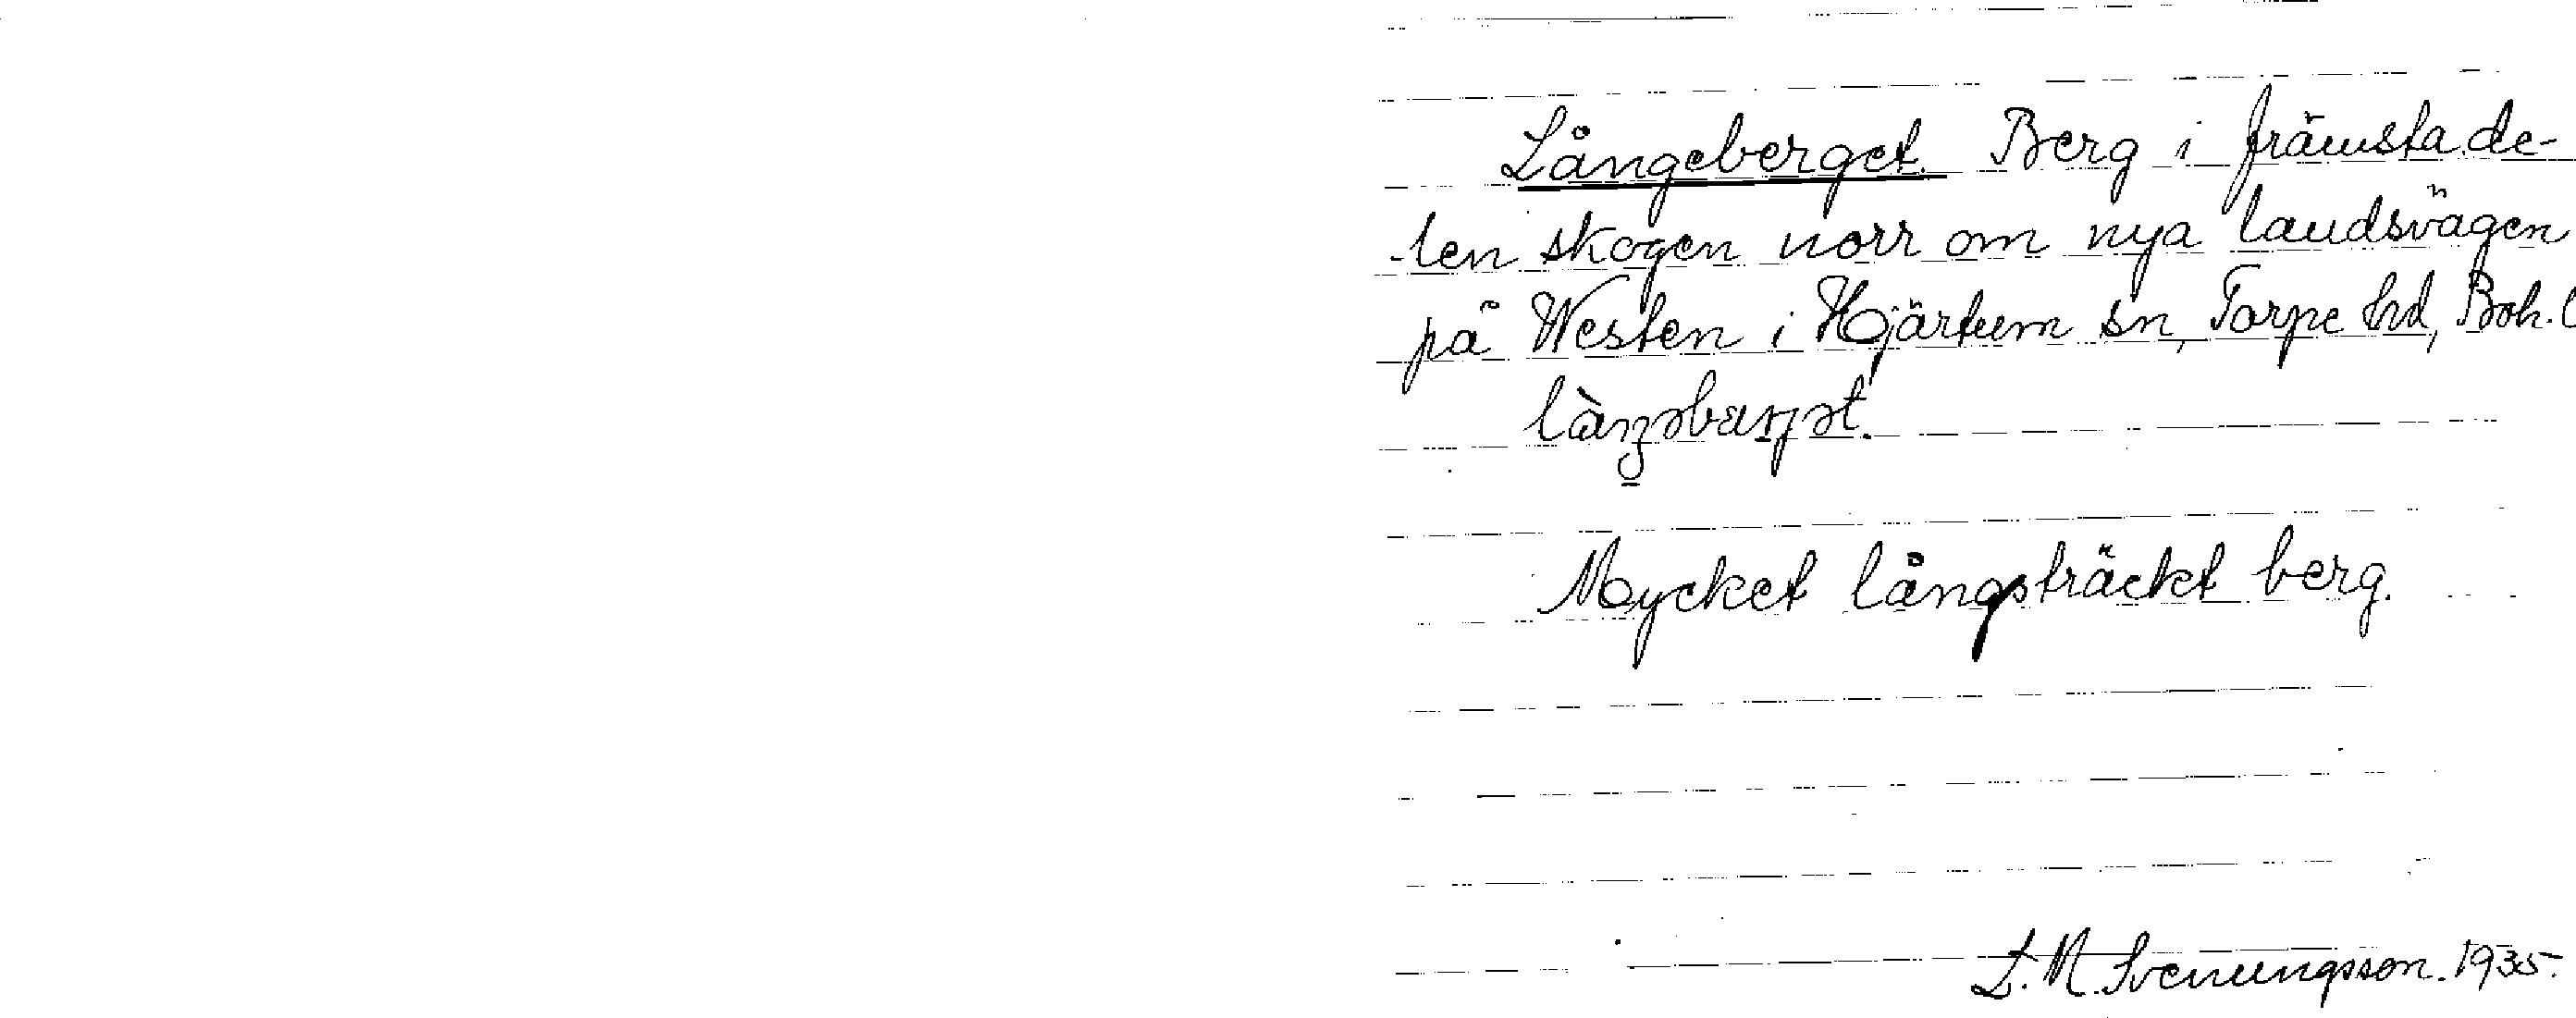 Långeberget. Berg i främsta de-
-len skogen norr om nya landsvägen
på Westen i Hjärtum sn, Torpe hd, Boh. l
Mycket långsträckt berg.
L. M. Svenungsson. 1935.